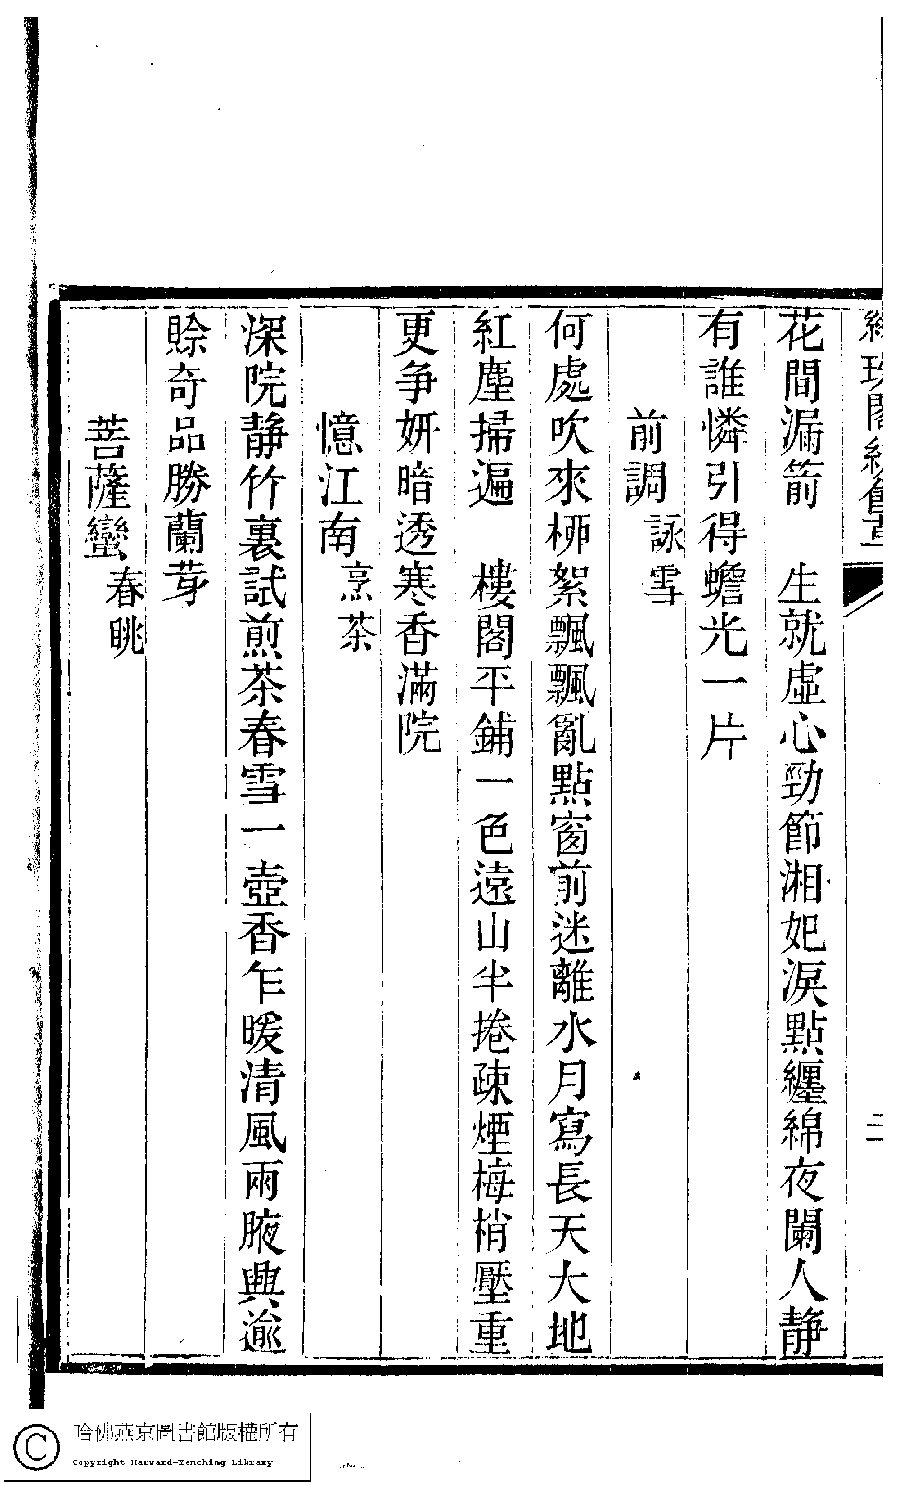 花間漏箭　生就虛心勁節湘妃淚點纏綿夜闌人静
有誰憐引得蟾光一片
前調 詠雪
何處吹來桺絮飄飄亂點窗前迷離水月寫長天大地
紅塵掃遍　樓閣平鋪一色遠山半捲疎煙梅梢壓重
更争妍暗透寒香滿院
憶江南 烹茶
深院静竹裏試煎茶春雪一壺香乍暖清風兩腋興逾
賒奇品勝蘭芽
菩薩蠻 春眺
二
哈佛燕京圖書館版權所有
Copyright Harvard-Yenching Library